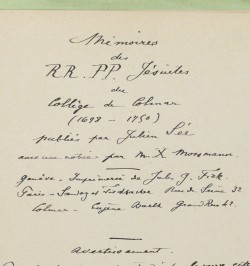 Mémoires
des
RR. PP. Jésuites
du
Collège de Colmar
(1698 - 1750)
publiés par Julien Sée
avec une notice par M. X. Mossmann.
Genève - Imprimerie de Jules G. Fick.
Paris - Sandoz et Fischbacher Rue de Seine 33
Colmar - Eugène Barth Grand Rue
Avertissement.